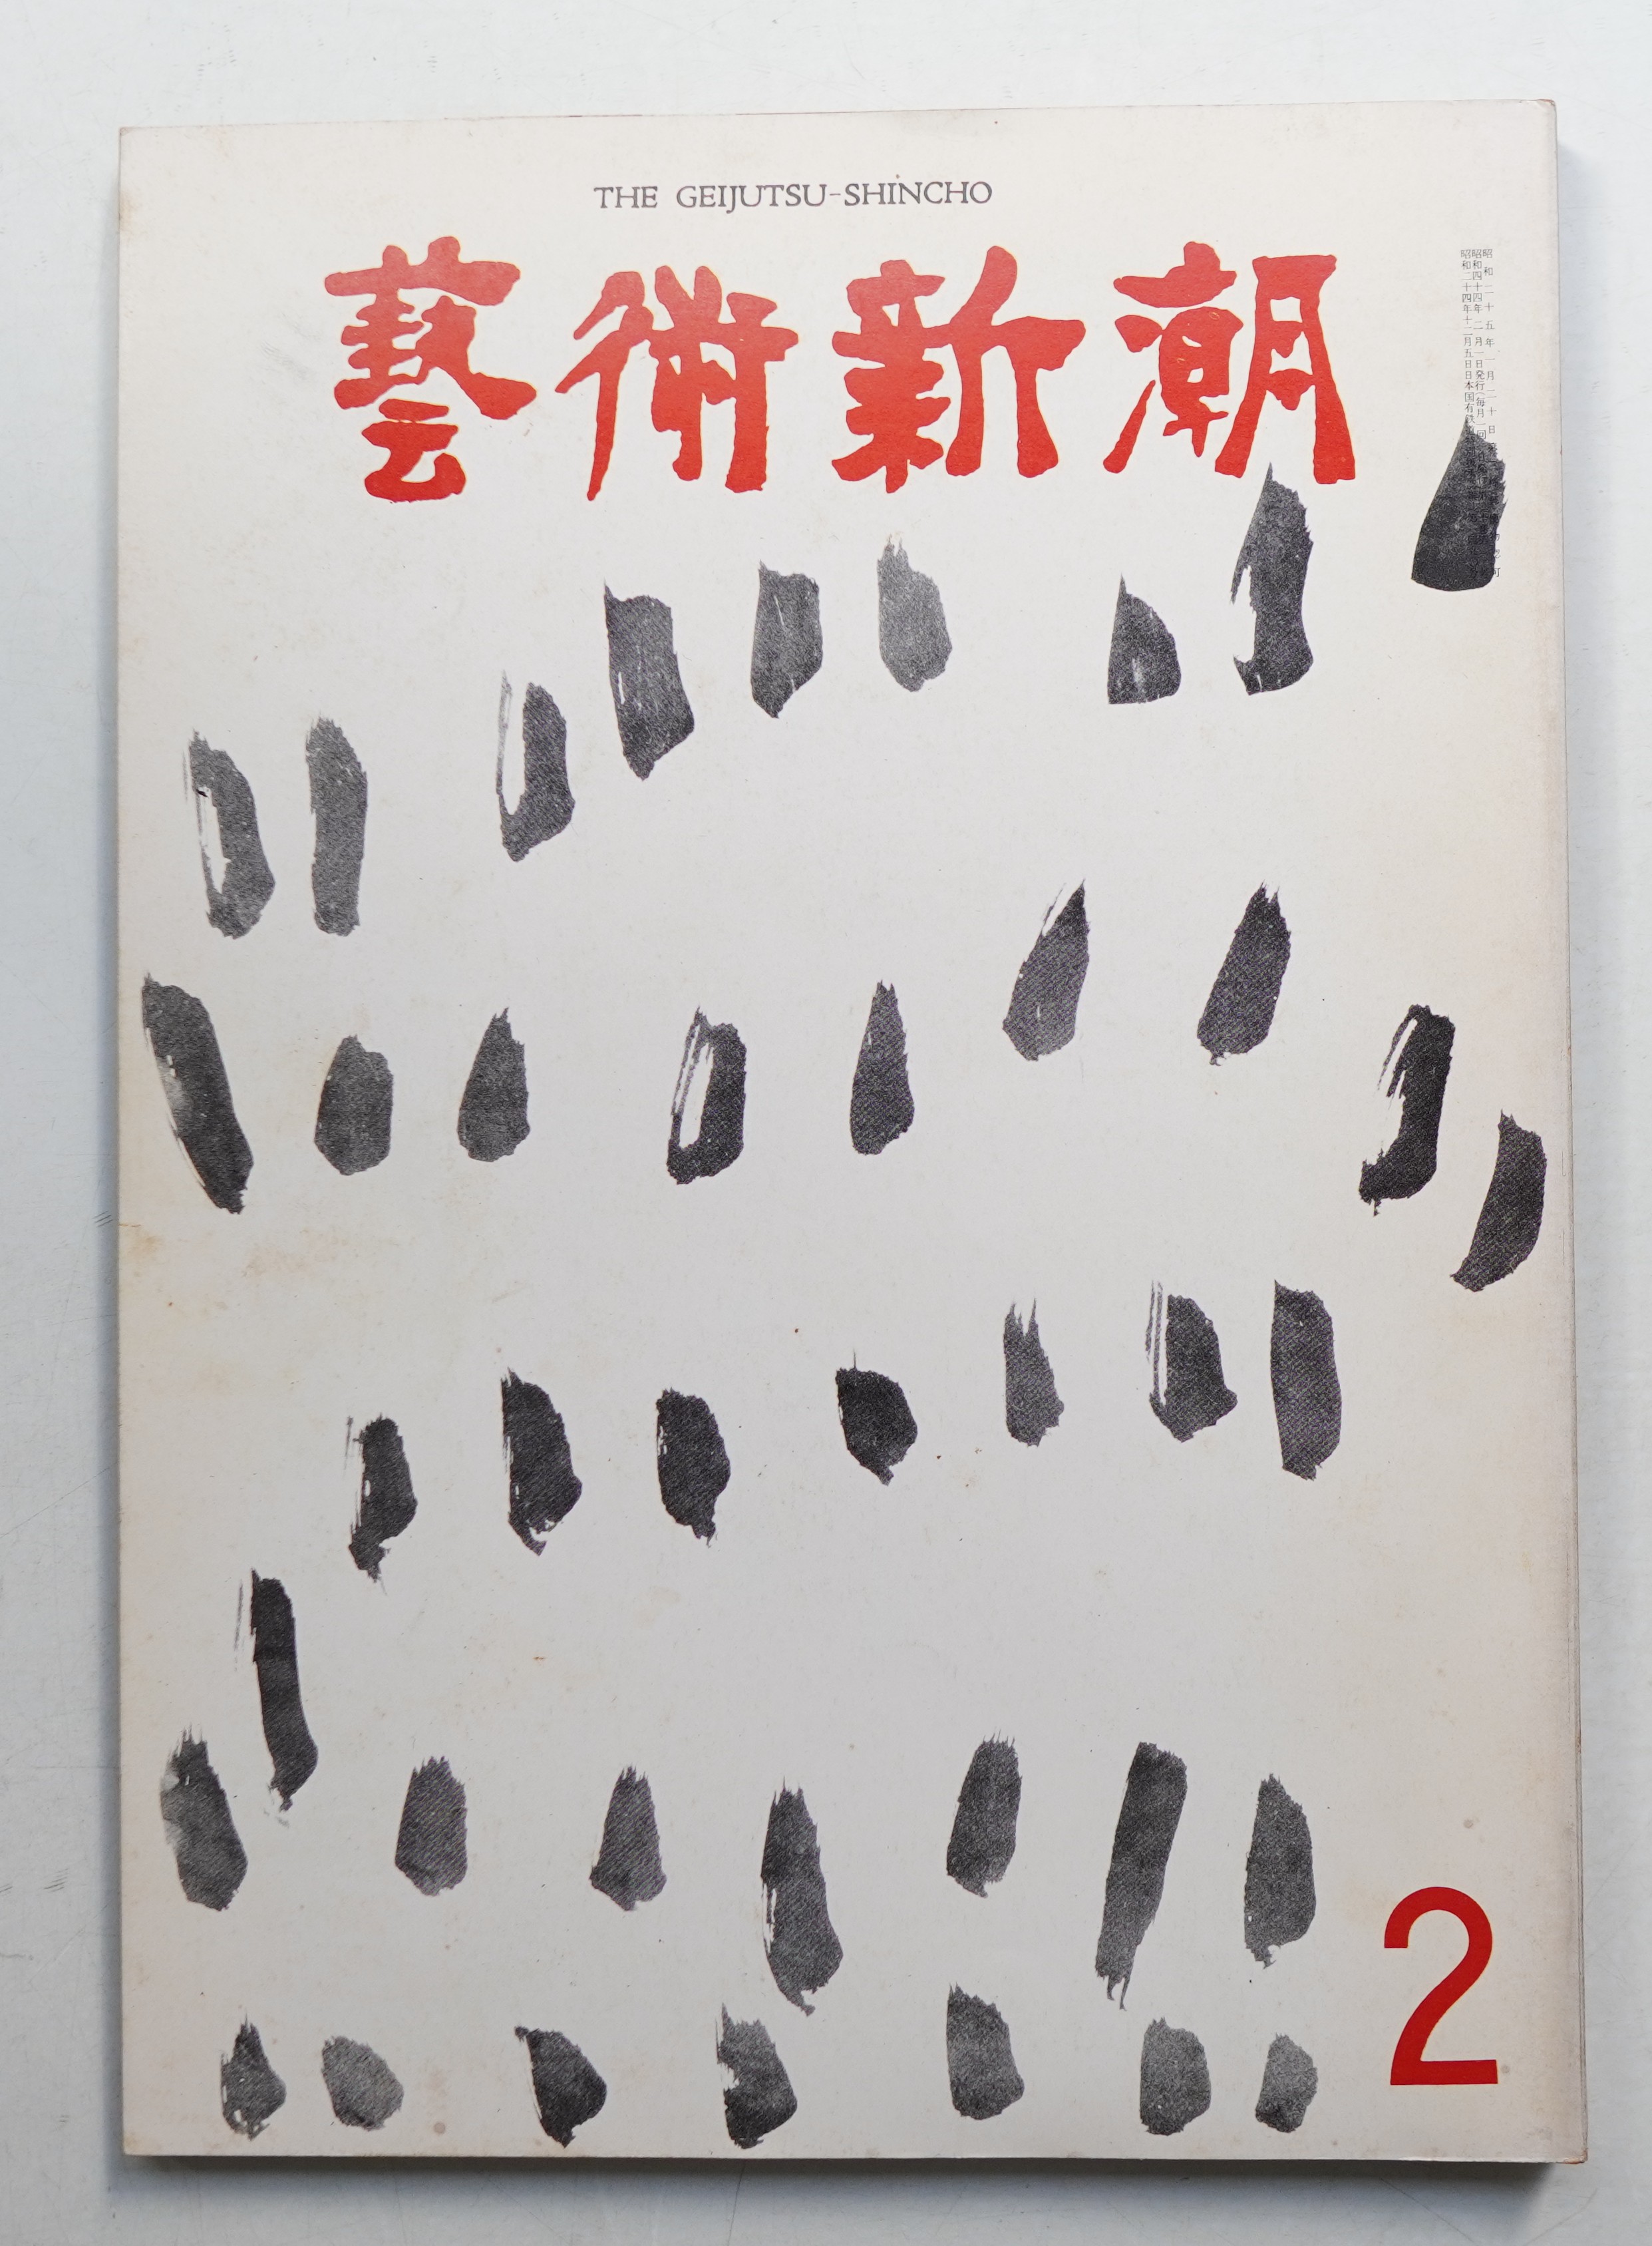 THE GEIJUTSU-SHINCHO
藝術新潮
昭和二十五年一月二十日
昭和四十四年二月一日発行(毎月一回
昭和二十四年十二月五日日本国有鉄
2